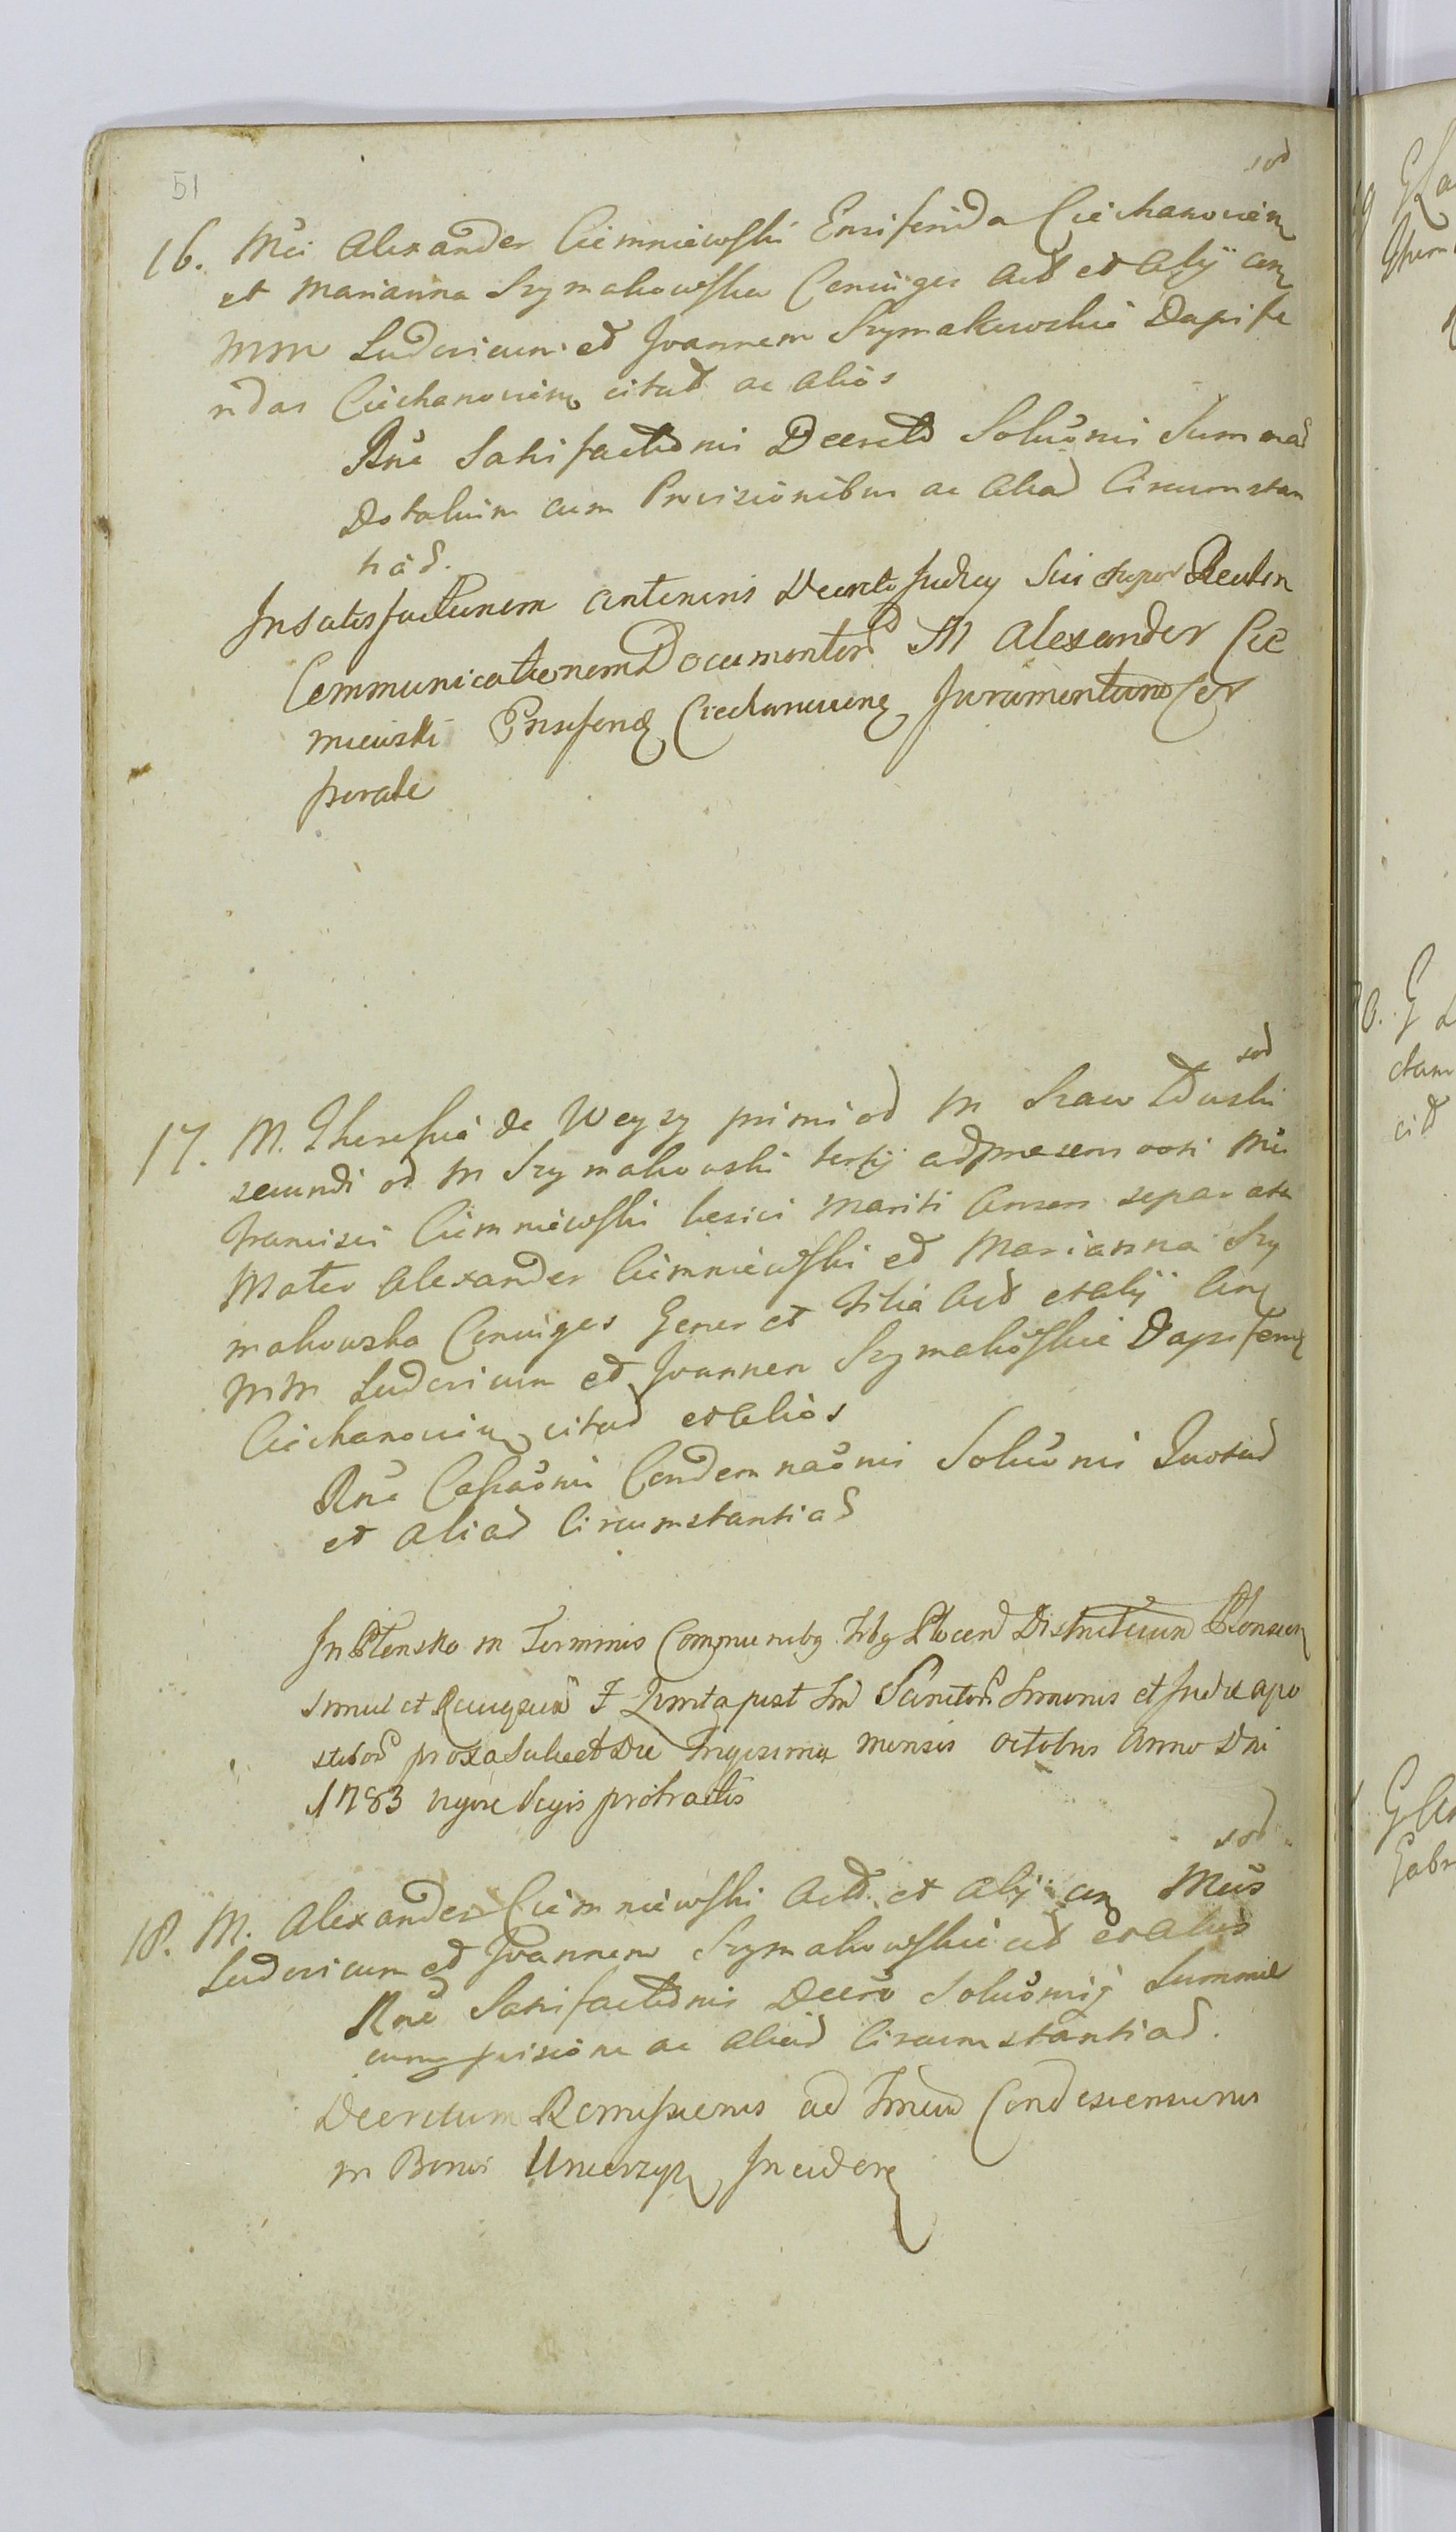 51
sod
16. Mci Alexander Ciemniewski Ensiferida Ciechanovien
et Marianna Szymakowska Coniuges Act et Alij con
MM Ludovicum et Joannem Szymakowskie Dapife
ridas Ciechanovien citat ac alios
Rne Satisfactionis Decreto Soluonis Summar
Dotalium cum Provisionibus ac aliad Circumstan
tiad.
In satisfactionem anterioris Decreti Judicij Sui super Realem
Communicationem Documentor M Alexander Cie
mniewski Ensiferid Ciechanovieng Juramentum Cor
porale
sod
17. M. Theresia de Weysy primi od M
secundi od M Szymakowski tertij ad praesens voti Mci
Francisci Ciemniewski legici Mariti Consors separata
Mater Alexander Ciemniewski et Marianna Szy
makowska Coniuges Gener et Filia Act et alij con
MM Ludovicum et Joannem Szymakowskie Dapiferid
Ciechanovien citad et alios
Rne Cassaonis Condemnaonis Soluonis Quotad
et aliad Circumstantiad
In Płonsko in Terminis Communibg Trbg Plocen Districtuum Płonscen
simul et Raciązien F Quinta post Fm Sanctor Simonis et Judae apo
stolor proxa Scilicet Die Trigesima mensis octobris Anno Dni
1783 vigore Legis protractis
sod
18. M. Alexander Ciemniewski Act. et alij con Mcos
Ludovicum et Joannem Szymakowskie cit et alios
Rne Satisfactionis Decro Soluonis Summae
cum pvisione ac aliad Circumstantiad.
Decretum Remissionis ad Fmum Condescensionis
in Bonis Unierzysz Inciden